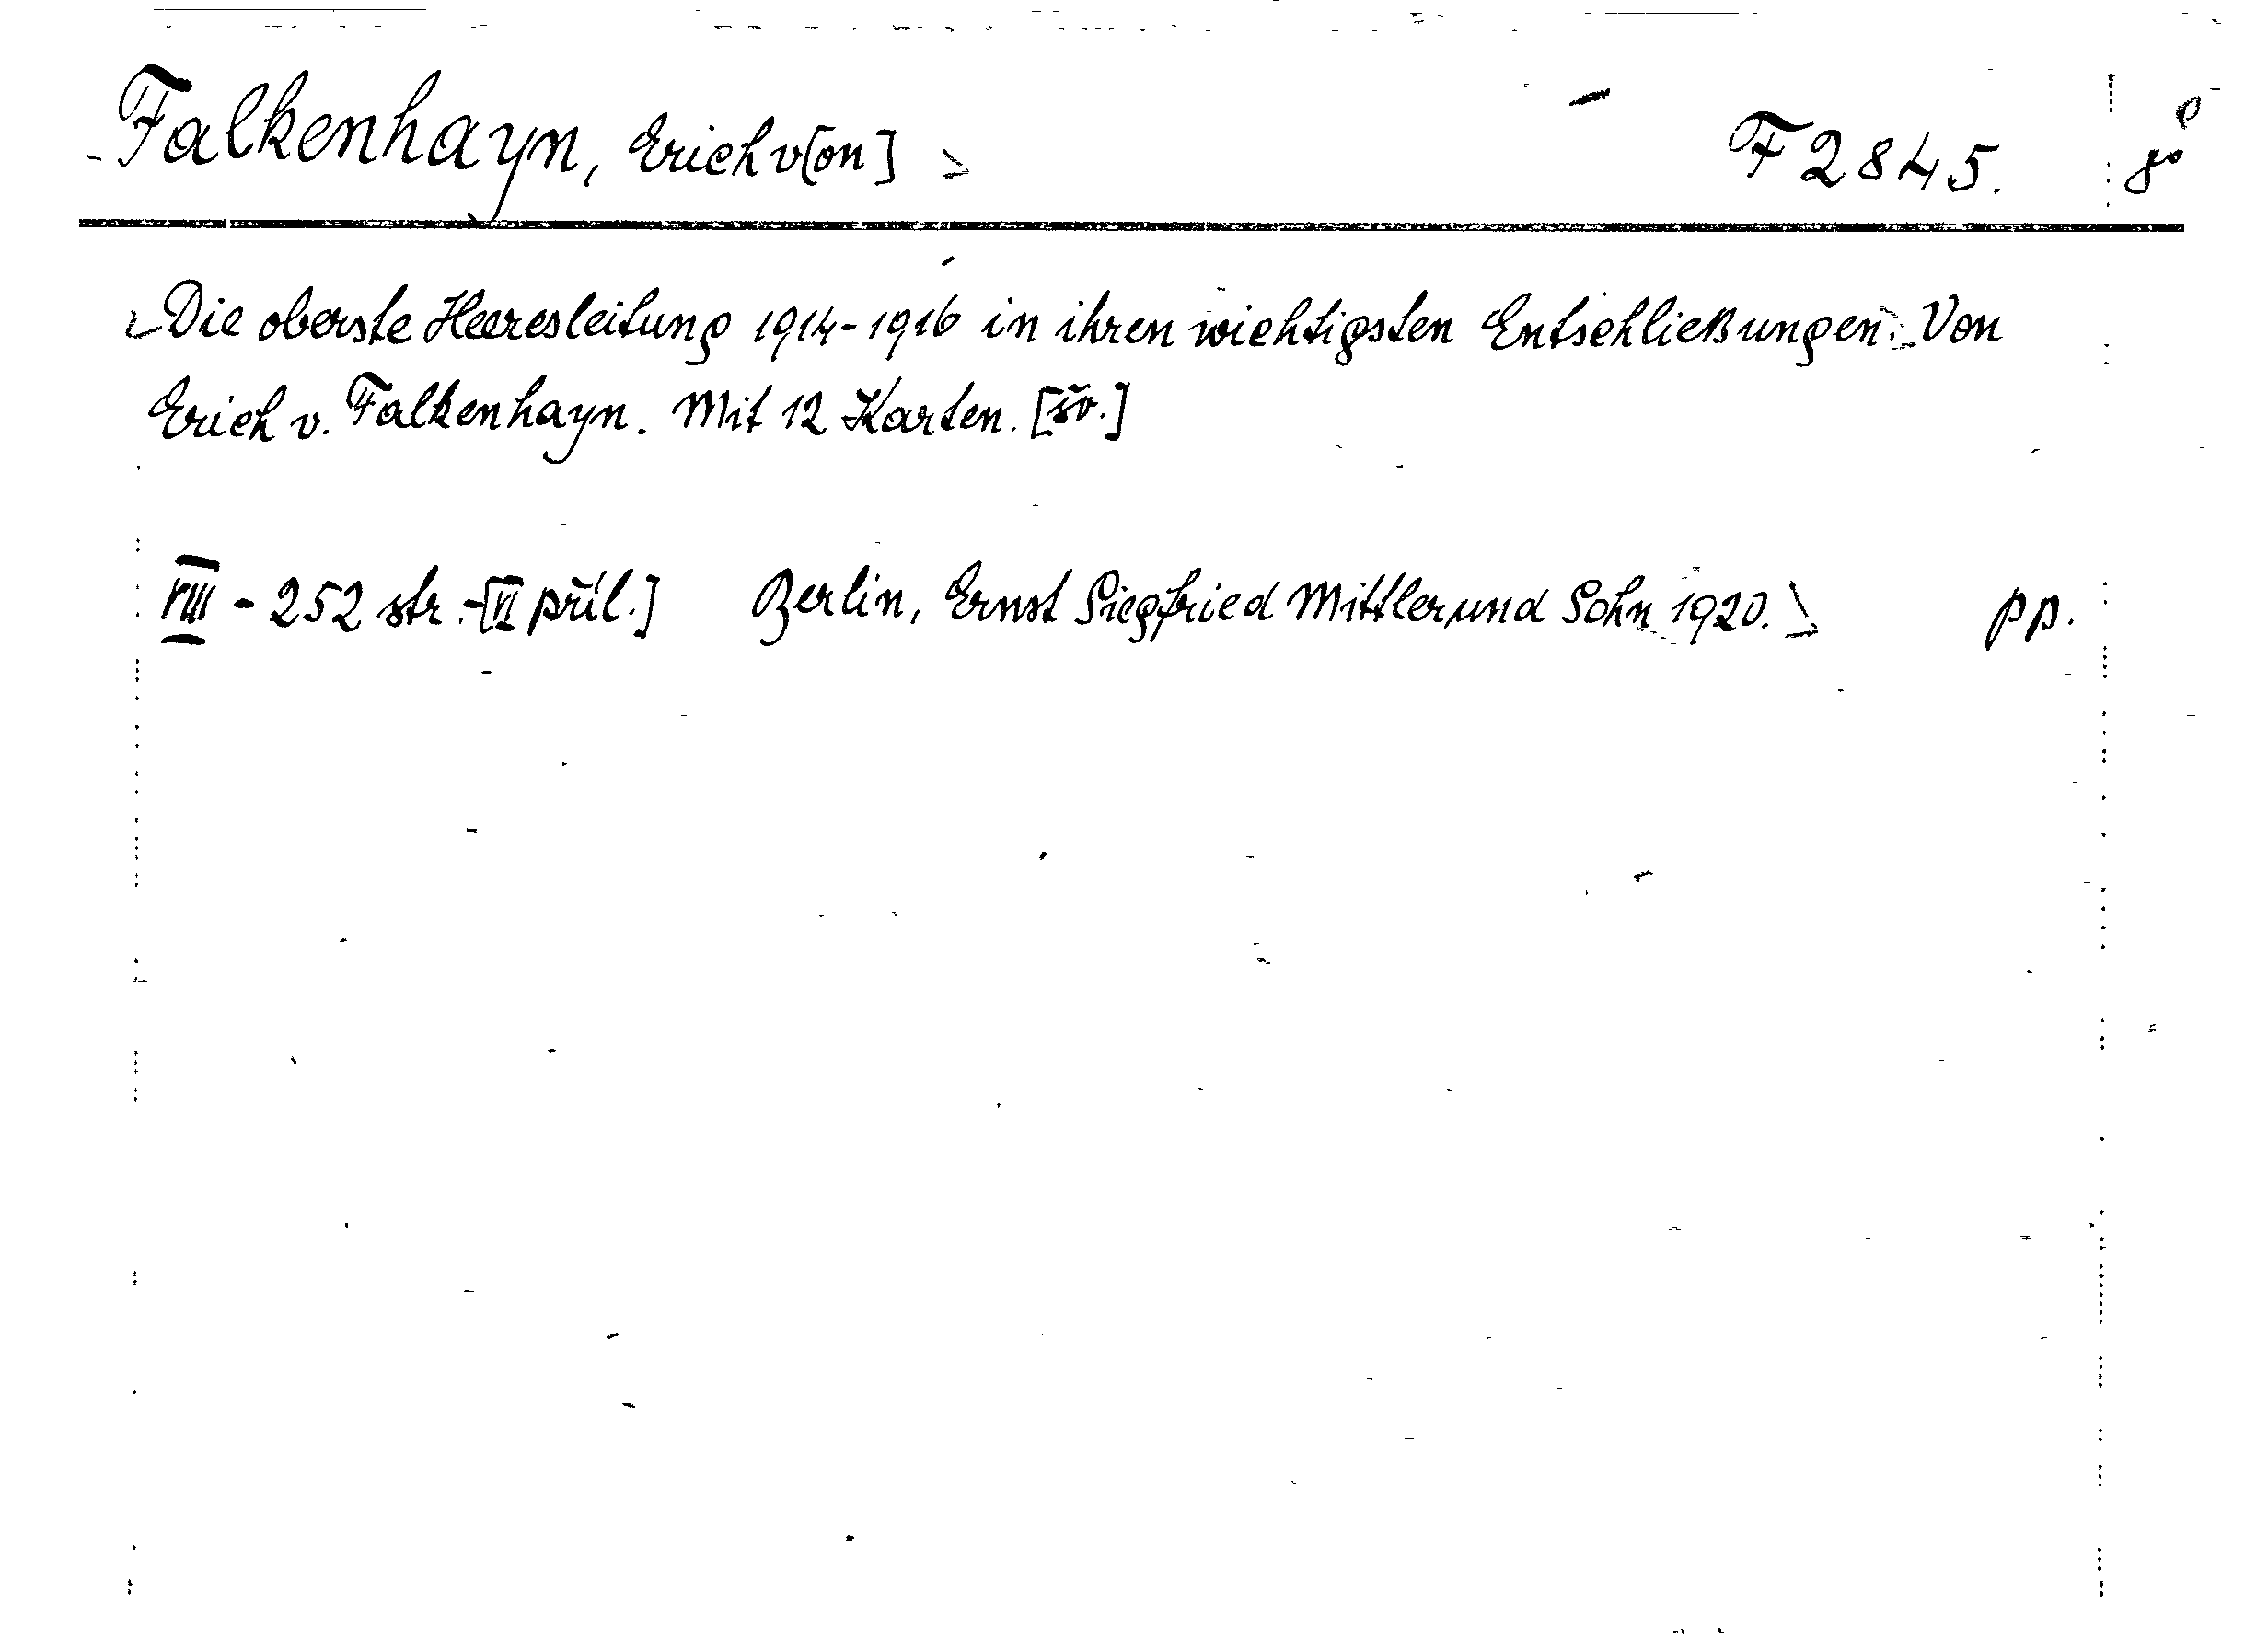 Falkenhayn, Erich v[on] F 2845. 8°
Die oberste Heeresleitung 1914-1916 in ihren wichtigsten Entschließungen. Von
Erich v. Falkenhayn. Mit 12 Karten. [šv.]
VIII - 252 str. -[VI příl.] Berlin, Ernst Siegfried Mittler und Sohn 1920. pp.